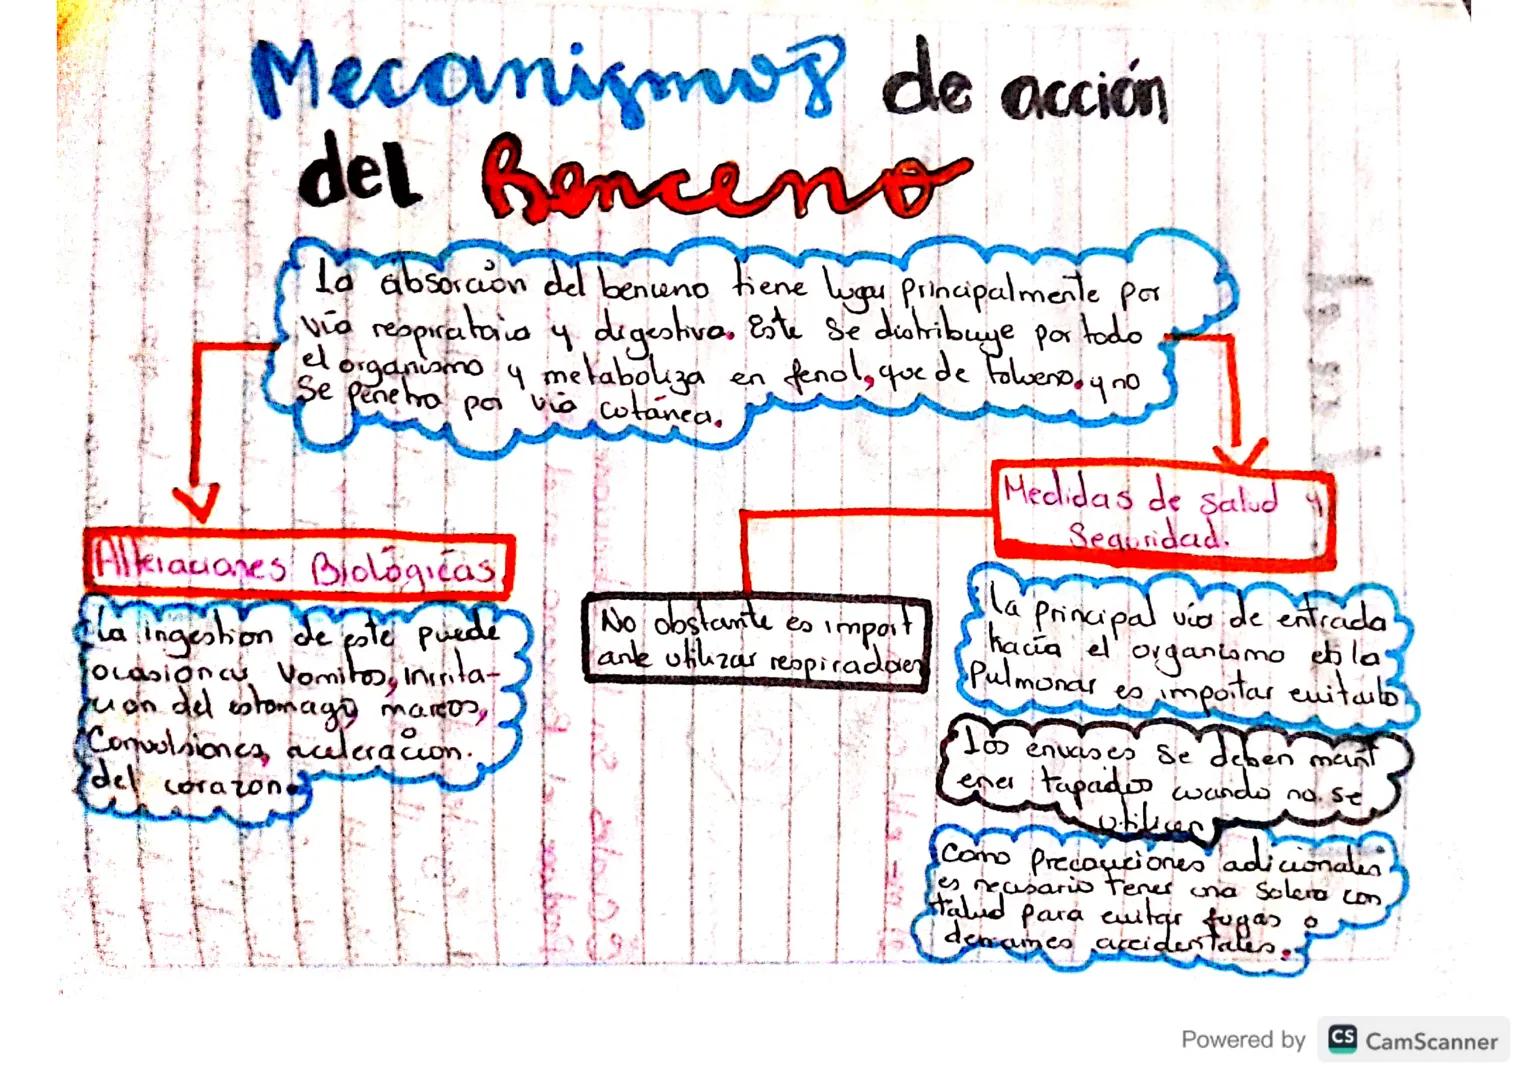 Mecanismos de acción
del Benceno
La absorción del benceno tiene lugar principalmente por
vía respiratoria y digestiva. Este se distribuye por todo
el organismo y metaboliza en fenol, que de tolueno. y no
se penetra por via cutánea.
Alteraciones Biológicas
La ingestion de este puede
ocasionar Vomitos, irrita-
cion del estomago, mareos,
Convulsiones, aceleración.
del corazon.
Medidas de Salud y
Seguridad.
No obstante es import
ante utilizar respiradores
la principal vía de entrada
hacía el organismo es la
Pulmonar es importar evitarlo
Los envases se deben mant
ener tapados cuando no se
utilicen
Como precauciones adicionales
es necesario tener una Solera con
talud para evitar fugas o
derrames accidentales.
Powered by CS CamScanner